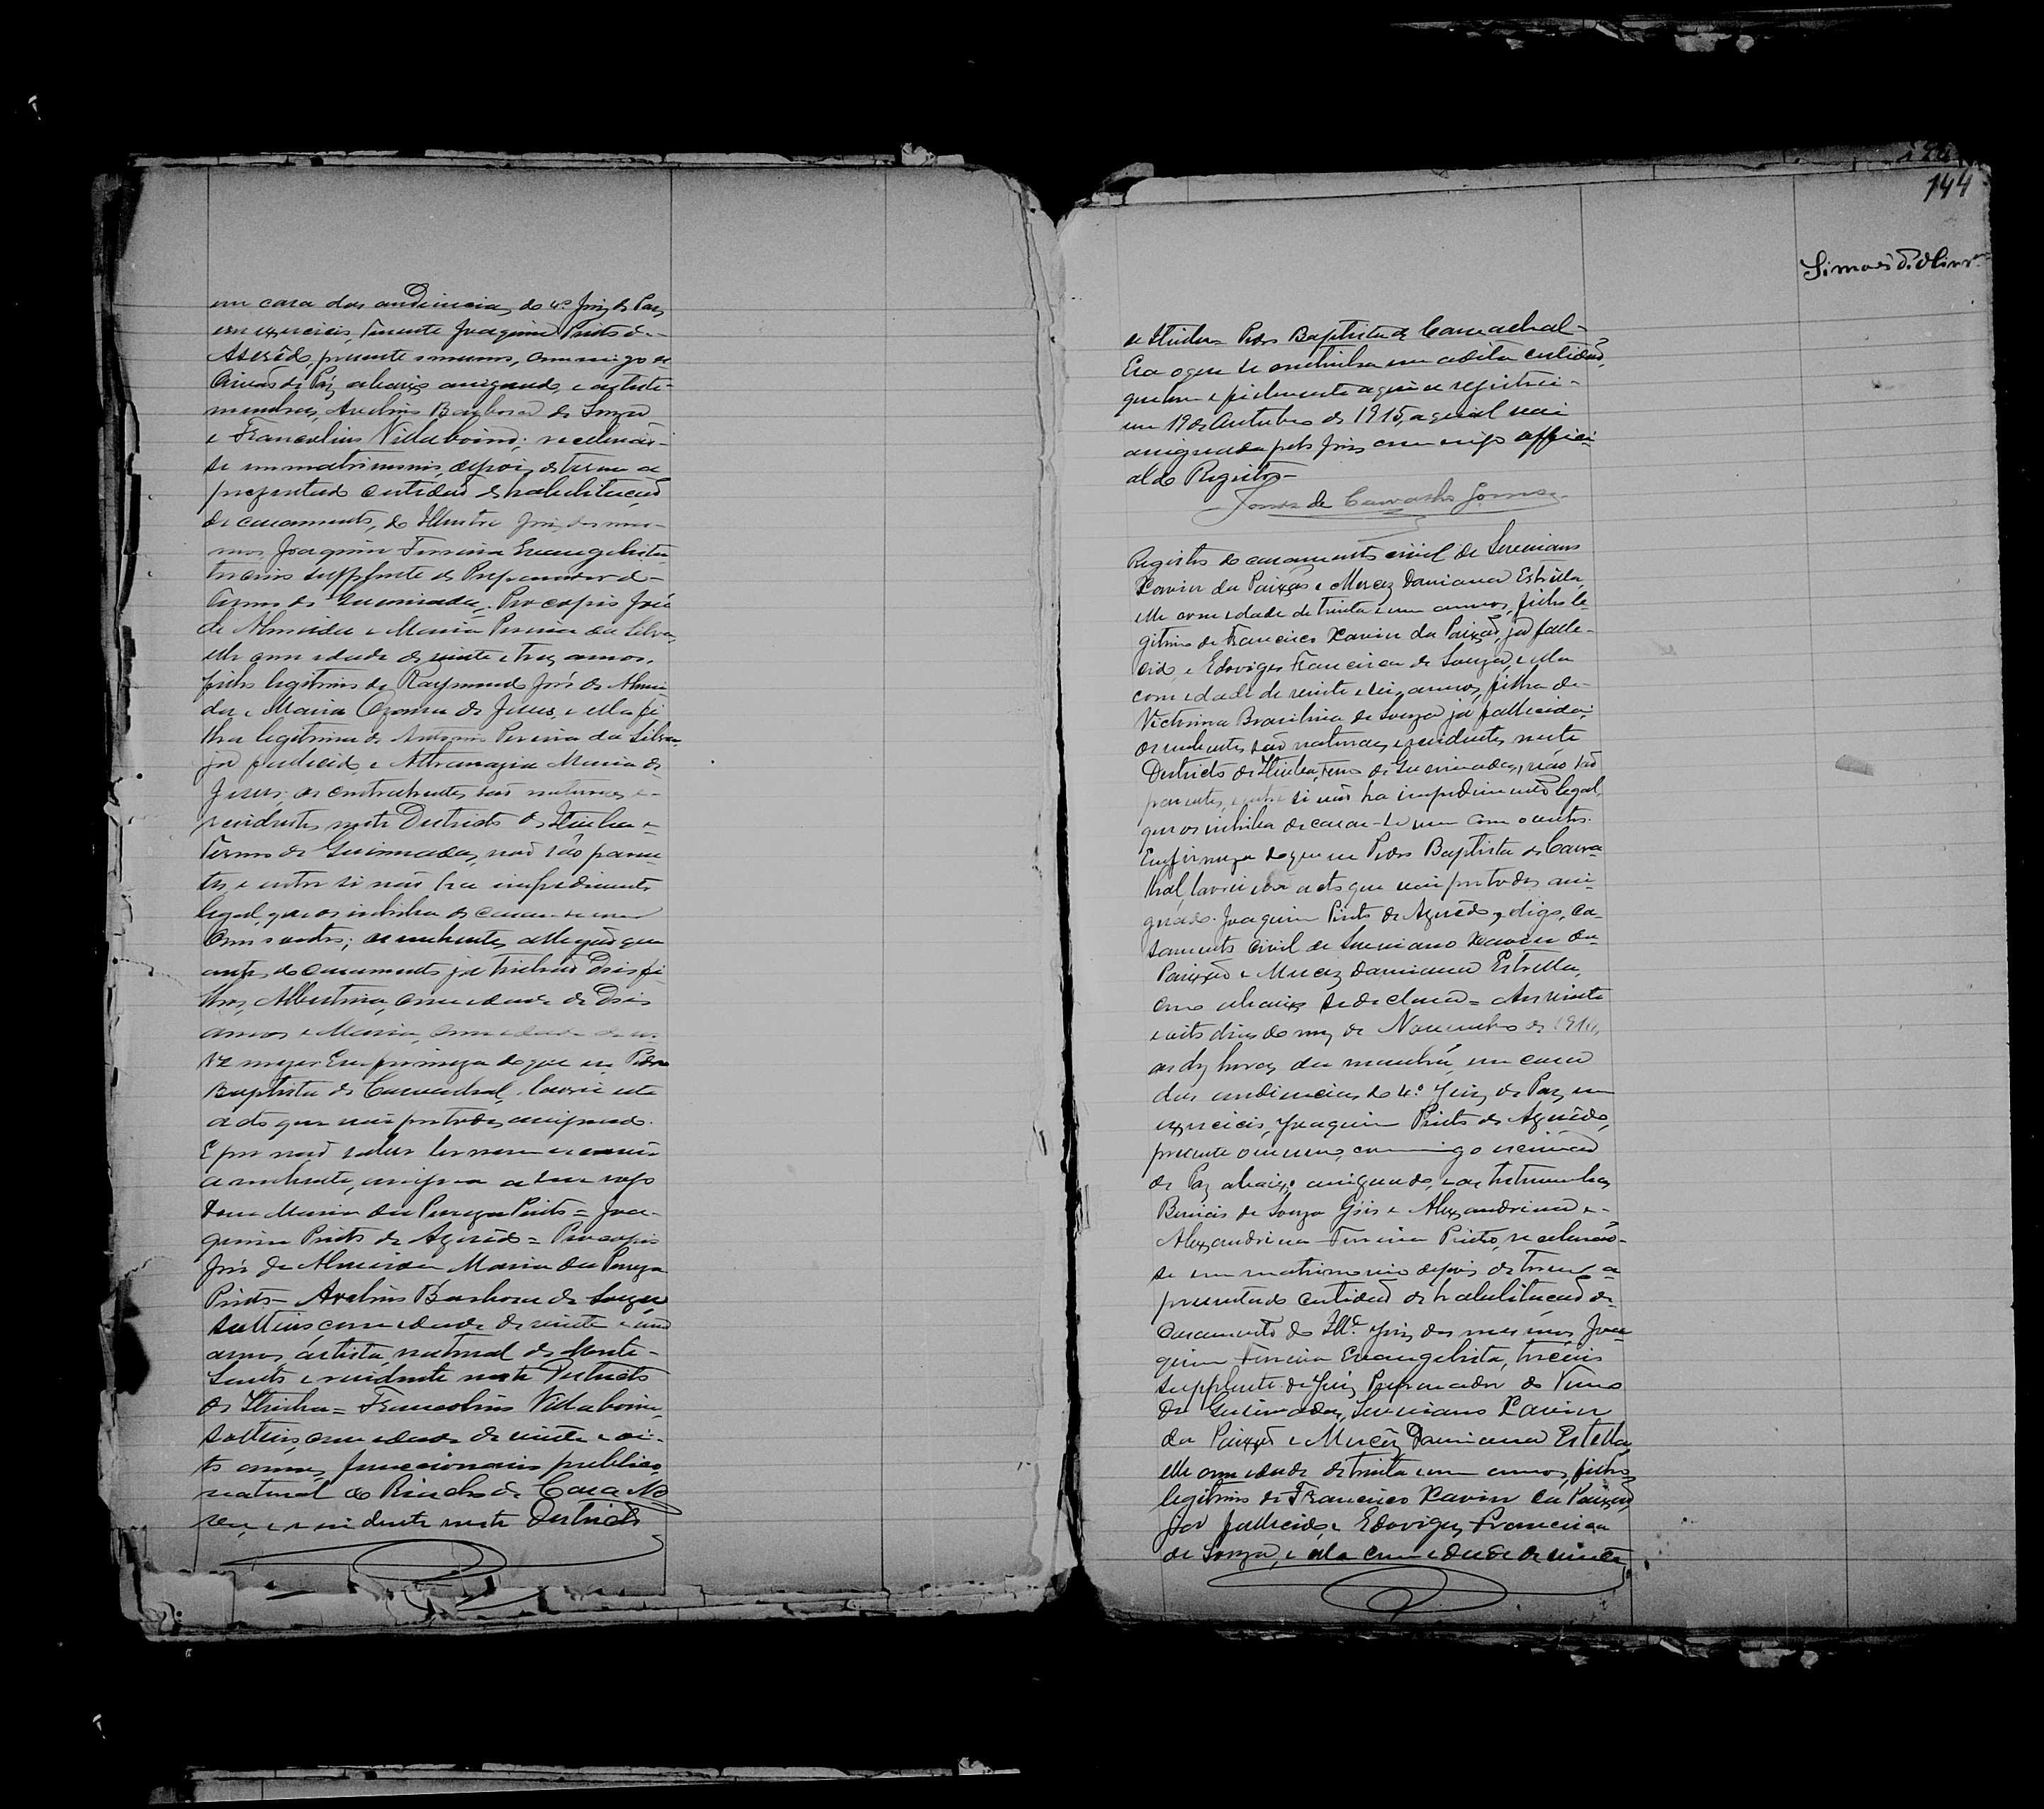 em casa das audiencias do 4º Juiz de Paz
em exercicio, Tenente Joaquim Pinto de
Aserêdo, presente o mesmo, commigo o
Escrivão de Paz abaixo assignado, e as teste-
munhas, Avelino Barbosa de Souza
e Francolino Villaboim; receberão-
se em matrimonio, depois de terem a
presentado certidão de habilitação
de casamento, do Illustre Juiz dos mes-
mos Joaquim Ferreira Evangelista
terceiro supplente do Preparador do
Termo de Queimadas, Procopio José
de Almeida e Maria Pereira da Silva,
elle com idade de vinte e trez annos,
filho legitimo de Raymundo José de Almei-
da e Maria de Jesus, e ella fi-
lha legitima de Antonio Pereira da Silva,
já fallecido, e Athanazia Maria de
Jesus; os contrahentes são naturaes e
residentes neste Districto de Itiuba e
Termo de Queimadas, não são paren-
tes, e entre si não ha impedimento
legal, que os inhiba de casar-se um
com o outro; os nubentes allegão que
antes do casamento já tinhão dois fi-
lhos, Albertina, com idade de dois
annos e Maria, com idade de no-
ve mezes. Em firmeza do que eu Pedro
Baptista de Carvalhal, lavrei este
acto que vai por todos assignado.
E por não saber ler nem escrever
a nubente, assigna a seu rogo
Dona Maria da Pureza Pinto = Joa-
quim Pinto de Azerêdo = Procopio
José de Almeida Maria da Pureza
Pinto - Avelino Barbosa de Souza
solteiro com idade de vinte e um
annos, artista, natural de Monte-
Santo e residente neste Districto
de Itiuba = Francolino Villaboim,
solteiro, com idade de vinte e oi-
to annos, funccionario publico,
natural do Riacho da Casa No
va, e residente neste Districto
144
Simões d'Oliv.ra
de Itiuba. Pedro Baptista de Carvalhal -
Era o que se continha em a dita certidão,
que bem e fielmente aqui a registrei
em 19 de Outubro de 1915, a qual vai
assignada pelo Juiz commigo offici-
al do Registro -
de Carvalho Gomes
Registro do casamento civil de Severiano
Xavier da Paixão e Mercez Damiana Estrella
elle com idade de trinta e um annos, filho le-
gitimo de Francisco Xavier da Paixão, já falle-
cido, e Edoviges Francisca de Souza, e ella
com idade de vinte e seis annos, filha de
Victorina Brasilina de Souza já fallecida;
os nubentes são naturaes e residentes neste
Districto de Itiuba, Termo de Queimadas, não são
parentes, e entre si não ha impedimento legal,
que os inhiba de casar-se um com o outro.
Em firmeza do que eu Pedro Baptista de Carva-
lhal, lavrei este acto que vai por todos assi-
gnado. Joaquim Pinto de Azerêdo, digo, ca-
samento civil de Severiano Xavier da
Paixão e Mercez Damiana Estrella,
como abaixo se declara = Aos vinte
e oito dias do mez de Novembro de 1914,
as dez horas da manhã, em casa
das audiencias do 4.º Juiz de Paz, em
exercicio, Joaquim Pinto de Azerêdo,
presente o mesmo, commigo escrivão
de Paz abaixo assignado, e as testemunhas
de Souza Góis e Alexandrina e
Alexandrina Ferreira Pinto, receberão-
se em matrimonio depois de terem a-
presentado certidão de habilitação de
casamento do Ill.e Juiz dos mesmos, Joa-
quim Ferreira Evangelista, terceiro
supplente do Juiz Preparador do Termo
de Queimadas, Severiano Xavier
da Paixão e Mercêz Damiana Estrella
elle com idade de trinta e um annos, filho
legitimo de Francisco Xavier da Paixão
já fallecido, e Edoviges Francisca
de Souza, e ella com idade de vinte